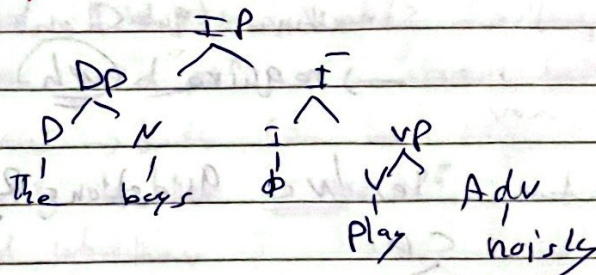 IP
DP I̅
D N I VP
The boys ϕ V Adv
play noisly